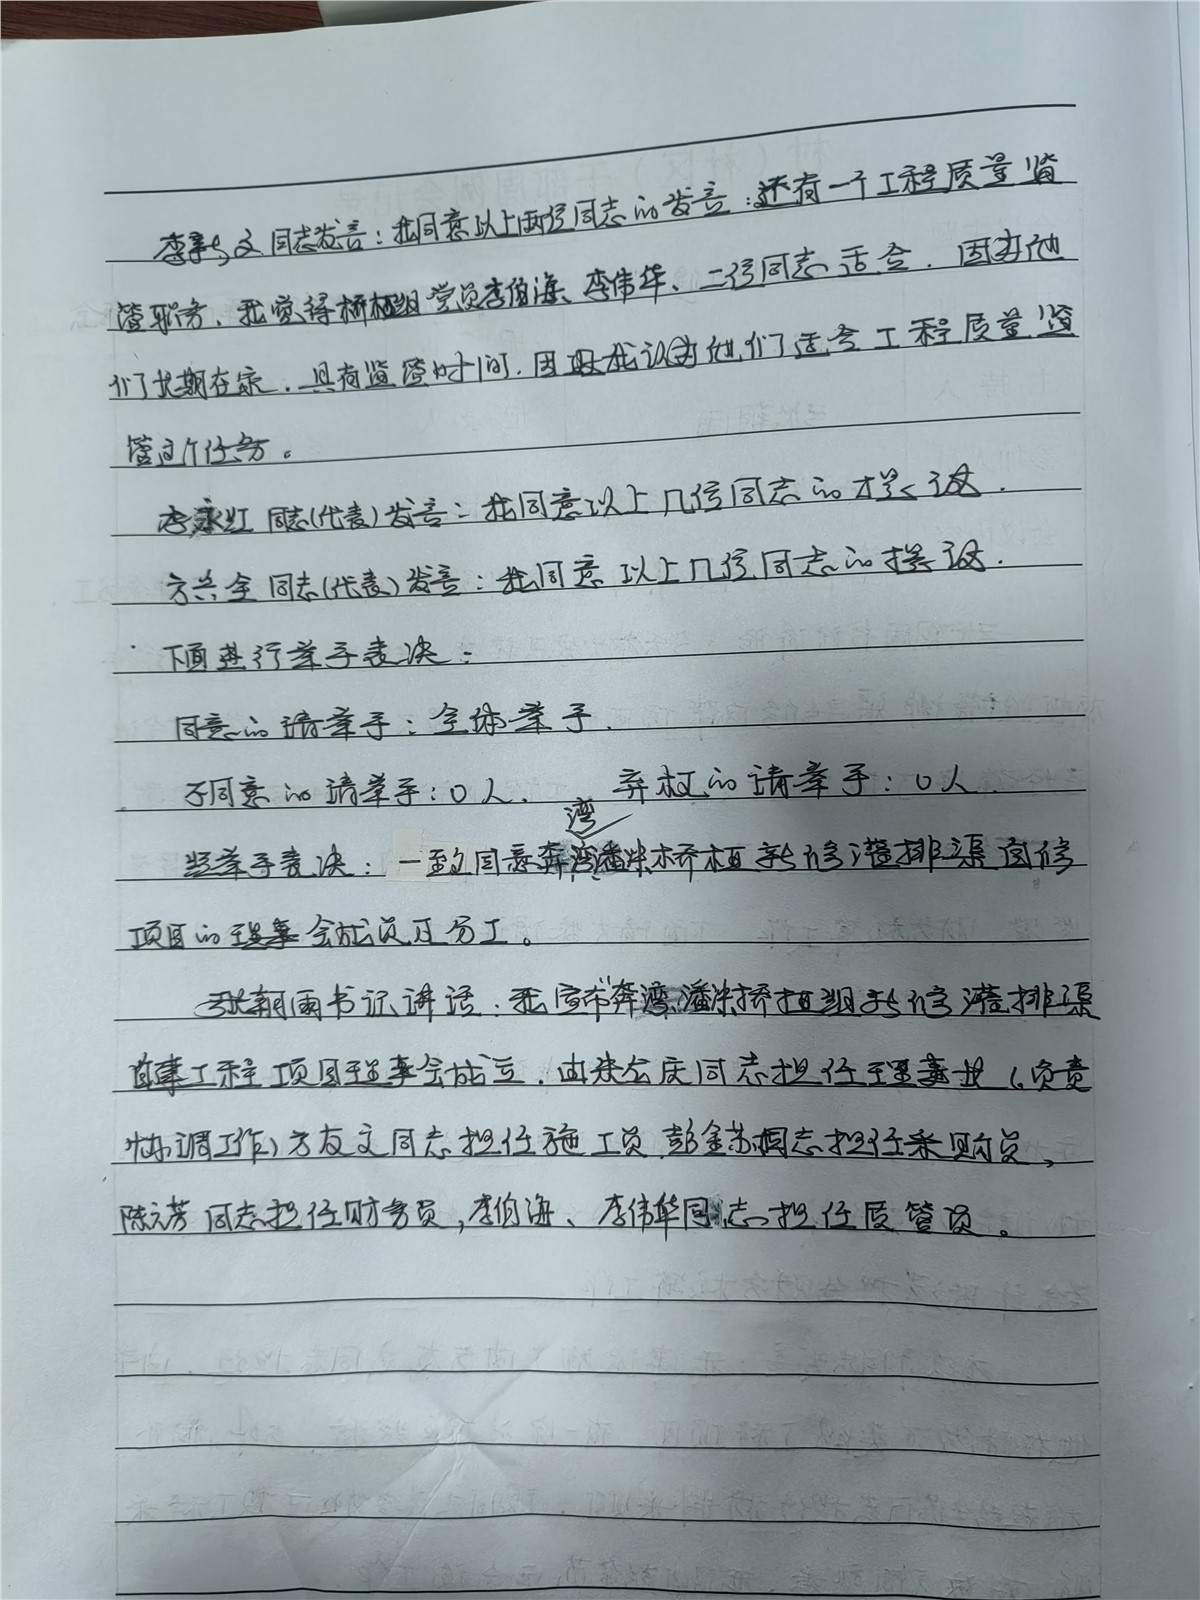 李新文同志发言：我同意以上两位同志的发言：还有一个工程质量监
管职务，我觉得桥梗组党员李伯海、李伟华、二位同志适合．因为他
们长期在家．具有监管时间．因此我认为他们适合工程质量监
管这个任务。
李永红同志(代表)发言：我同意以上几位同志的提议．
方兴全同志(代表)发言：我同意以上几位同志的提议．
下面进行举手表决：
同意的请举手：全体举手．
不同意的请举手：0人． 弃权的请举手：0人．
湾
经举手表决：一致同意奔湾潘冲桥梗新修灌排渠首修
项目的理事会成员及分工。
张朝雨书记讲话：我宣布"奔湾潘冲桥梗组新修灌排渠
首事工程项目理事会成立．由朱公庆同志担任理事长(负责
协调工作)方友文同志担任施工员．彭金苏同志担任采购员、
陈六芳同志担任财务员，李伯海、李伟华同志担任质管员。